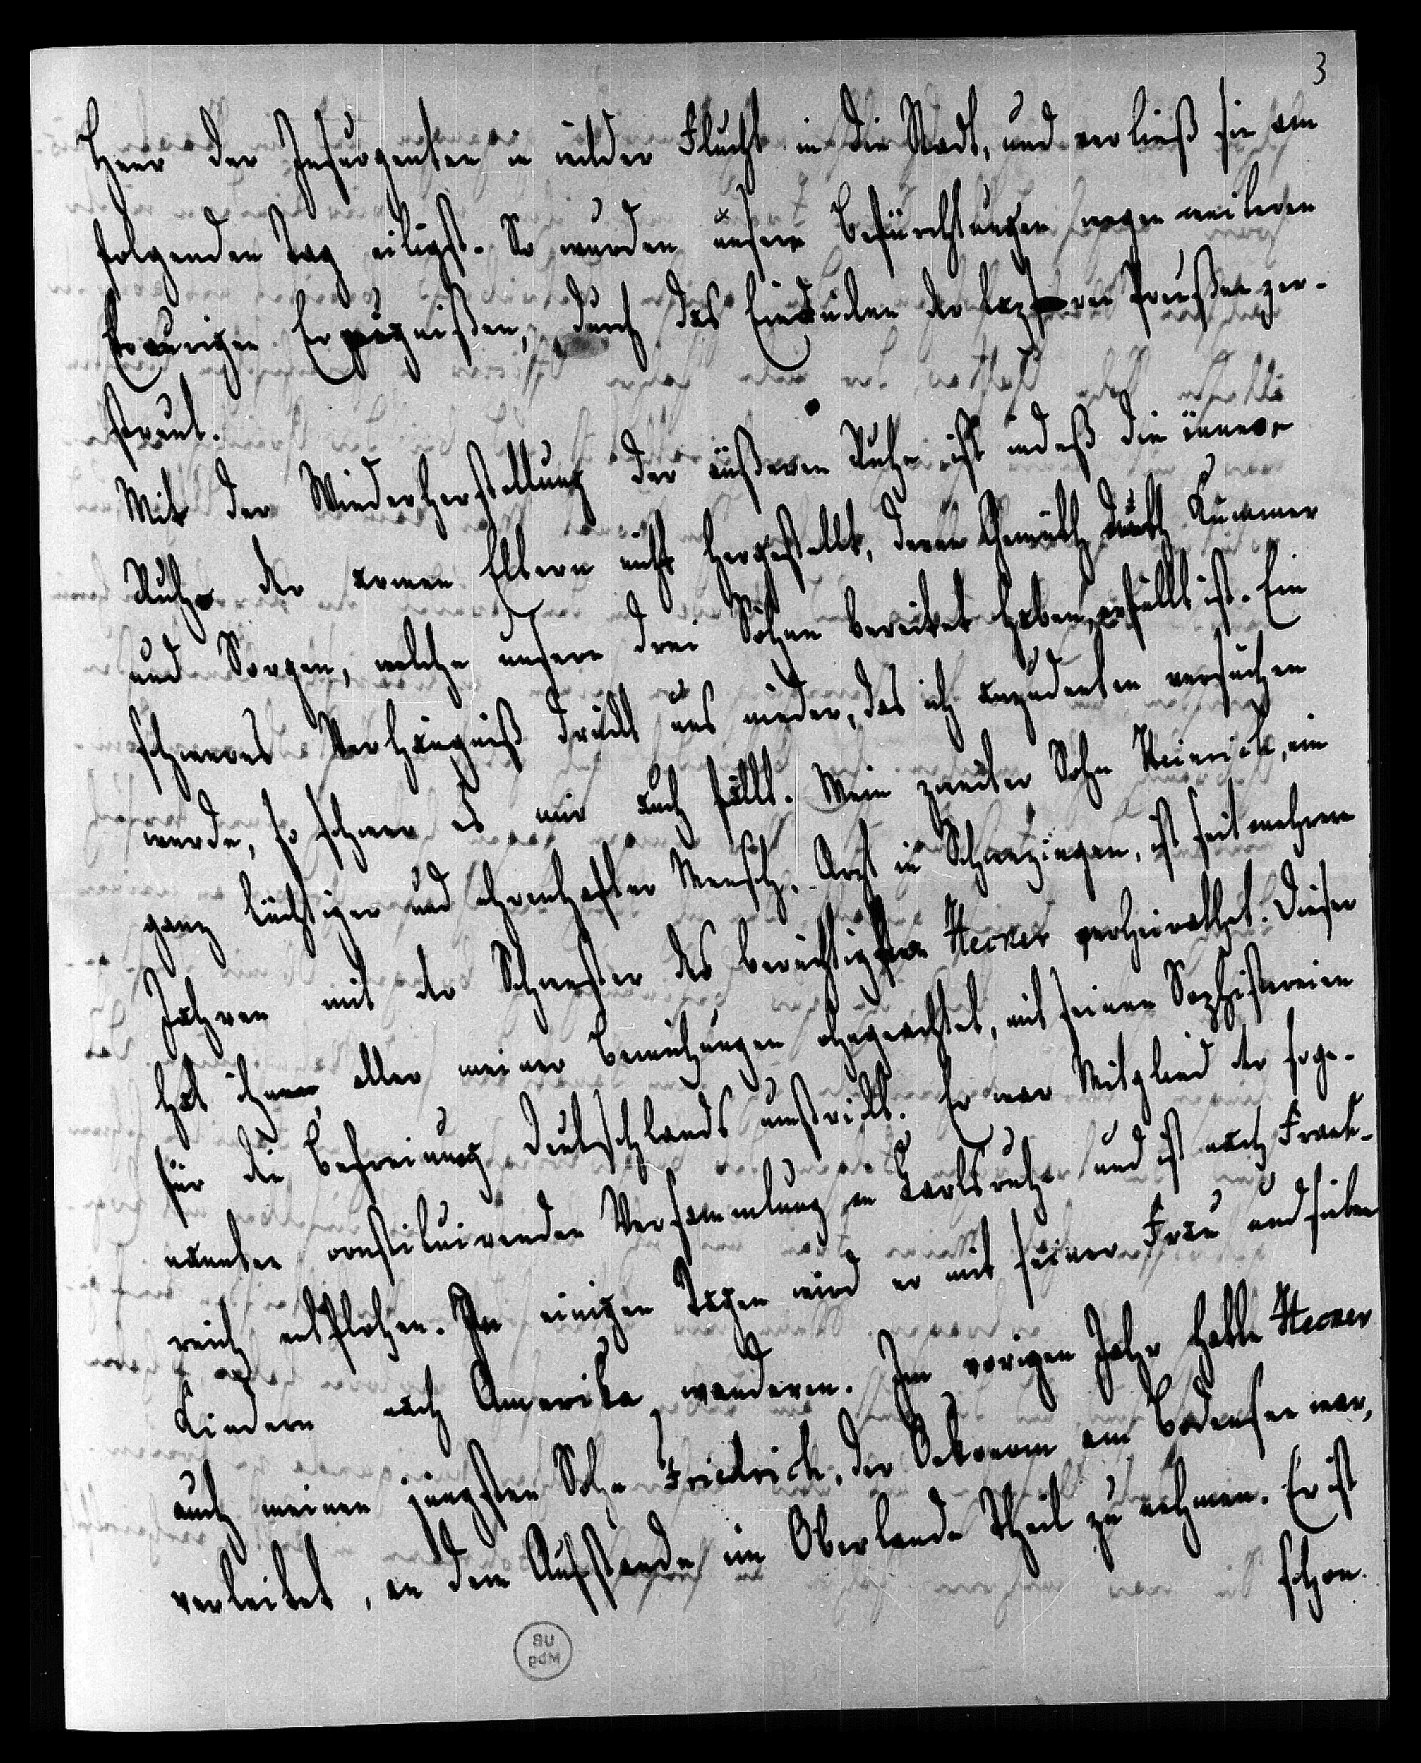 3
Heer der Insurgenten in wilder Flucht in die Stadt, und verließ sie am
folgenden Tag eiligst. So wurden unsere Befürchtungen wegen weiteren
traurigen Ereignißen, durch das Einrücken der tapferen Preußen zer-
streut.
Mit der Wiederherstellung der äußeren Ruhe ist indeß die innere
Ruhe der armen Eltern nicht hergestellt, deren Gemüth durch Kummer
und Sorgen, welche unsere drei Söhne bereitet haben, erfüllt ist. Ein
schweres Verhängniß drückt uns nieder, das ich anzudeuten versuchen
werde, so schwer es mir auch fällt. Mein zweiter Sohn Heinrich, ein
ganz tüchtiger und ehrenhafter Mensch, Arzt in Schwezingen, ist seit mehren
Jahren mit der Schwester des berüchtigten Hecker verheirathet. Dieser
hat ihnen, aller meiner Bemühungen ohngeachtet, mit seinen Sophistereien
für die Befreiung Deutschlands umstrickt. Er war Mitglied der soge-
nannten constituirenden Versammlung in Carlsruhe und ist nach Frank-
reich entflohen. In einigen Tagen wird er mit seiner Frau und sieben
Kindern nach Amerika wanderen. Im vorigen Jahr hatte Hecker
auch meinen jüngsten Sohn Friedrich, der Oekonom am Bodensee war,
verleitet, an dem Aufstande im Oberlande Theil zu nehmen. Er ist
schon
UB
Mbg